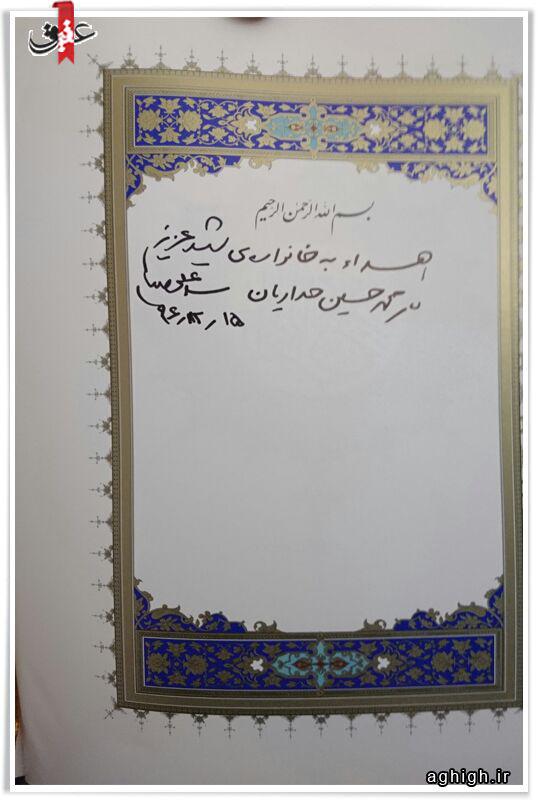 عقیق
بسم الله الرحمن الرحیم
اهداء به خانواده‌ی شهید عزیز
محمد حسین حدادیان
۱۵
aghigh.ir